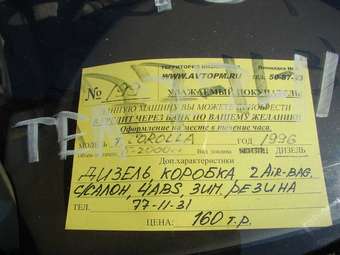 ТЕРРИТОРИЯ
WWW.AVTOPM.RU тел. 50-87-93
№ 199 УВАЖАЕМЫЙ ПОКУПАТЕЛЬ
МАШИНУ ВЫ МОЖЕТЕ ПРИОБРЕСТИ
В КРЕДИТ ЧЕРЕЗ БАНК ПО ВАШЕМУ ЖЕЛАНИЮ
Оформление на месте в течение часа.
МОДЕЛЬ COROLLA ГОД 1996
2000 ДИЗЕЛЬ
Доп.характеристики
ДИЗЕЛЬ, КОРОБКА, 2 AIR-BAG.
С/САЛОН, ЧАBS, ЗИМ. РЕЗИНА
ТЕЛ. 77-11-31
ЦЕНА: 160 т.р.